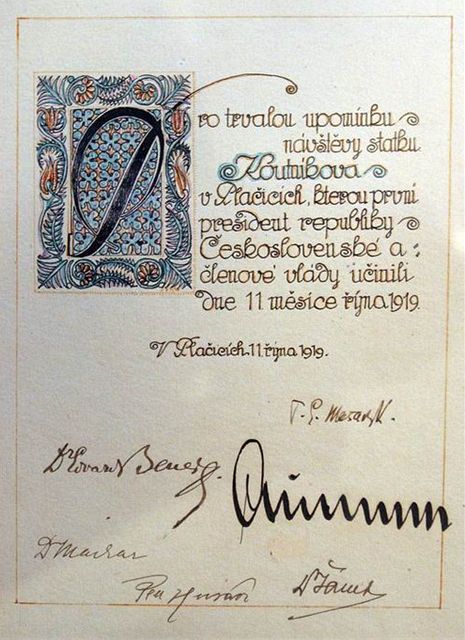 Pro trvalou upomínku
návštěvy statku
Koutníkova
v Plačicích, kterou první
president republiky
Československé a
členové vlády učinili
dne 11 měsíce října 1919.
V Plačicích, 11. října 1919.
T. G. Masaryk.
Dr Edvard Beneš.